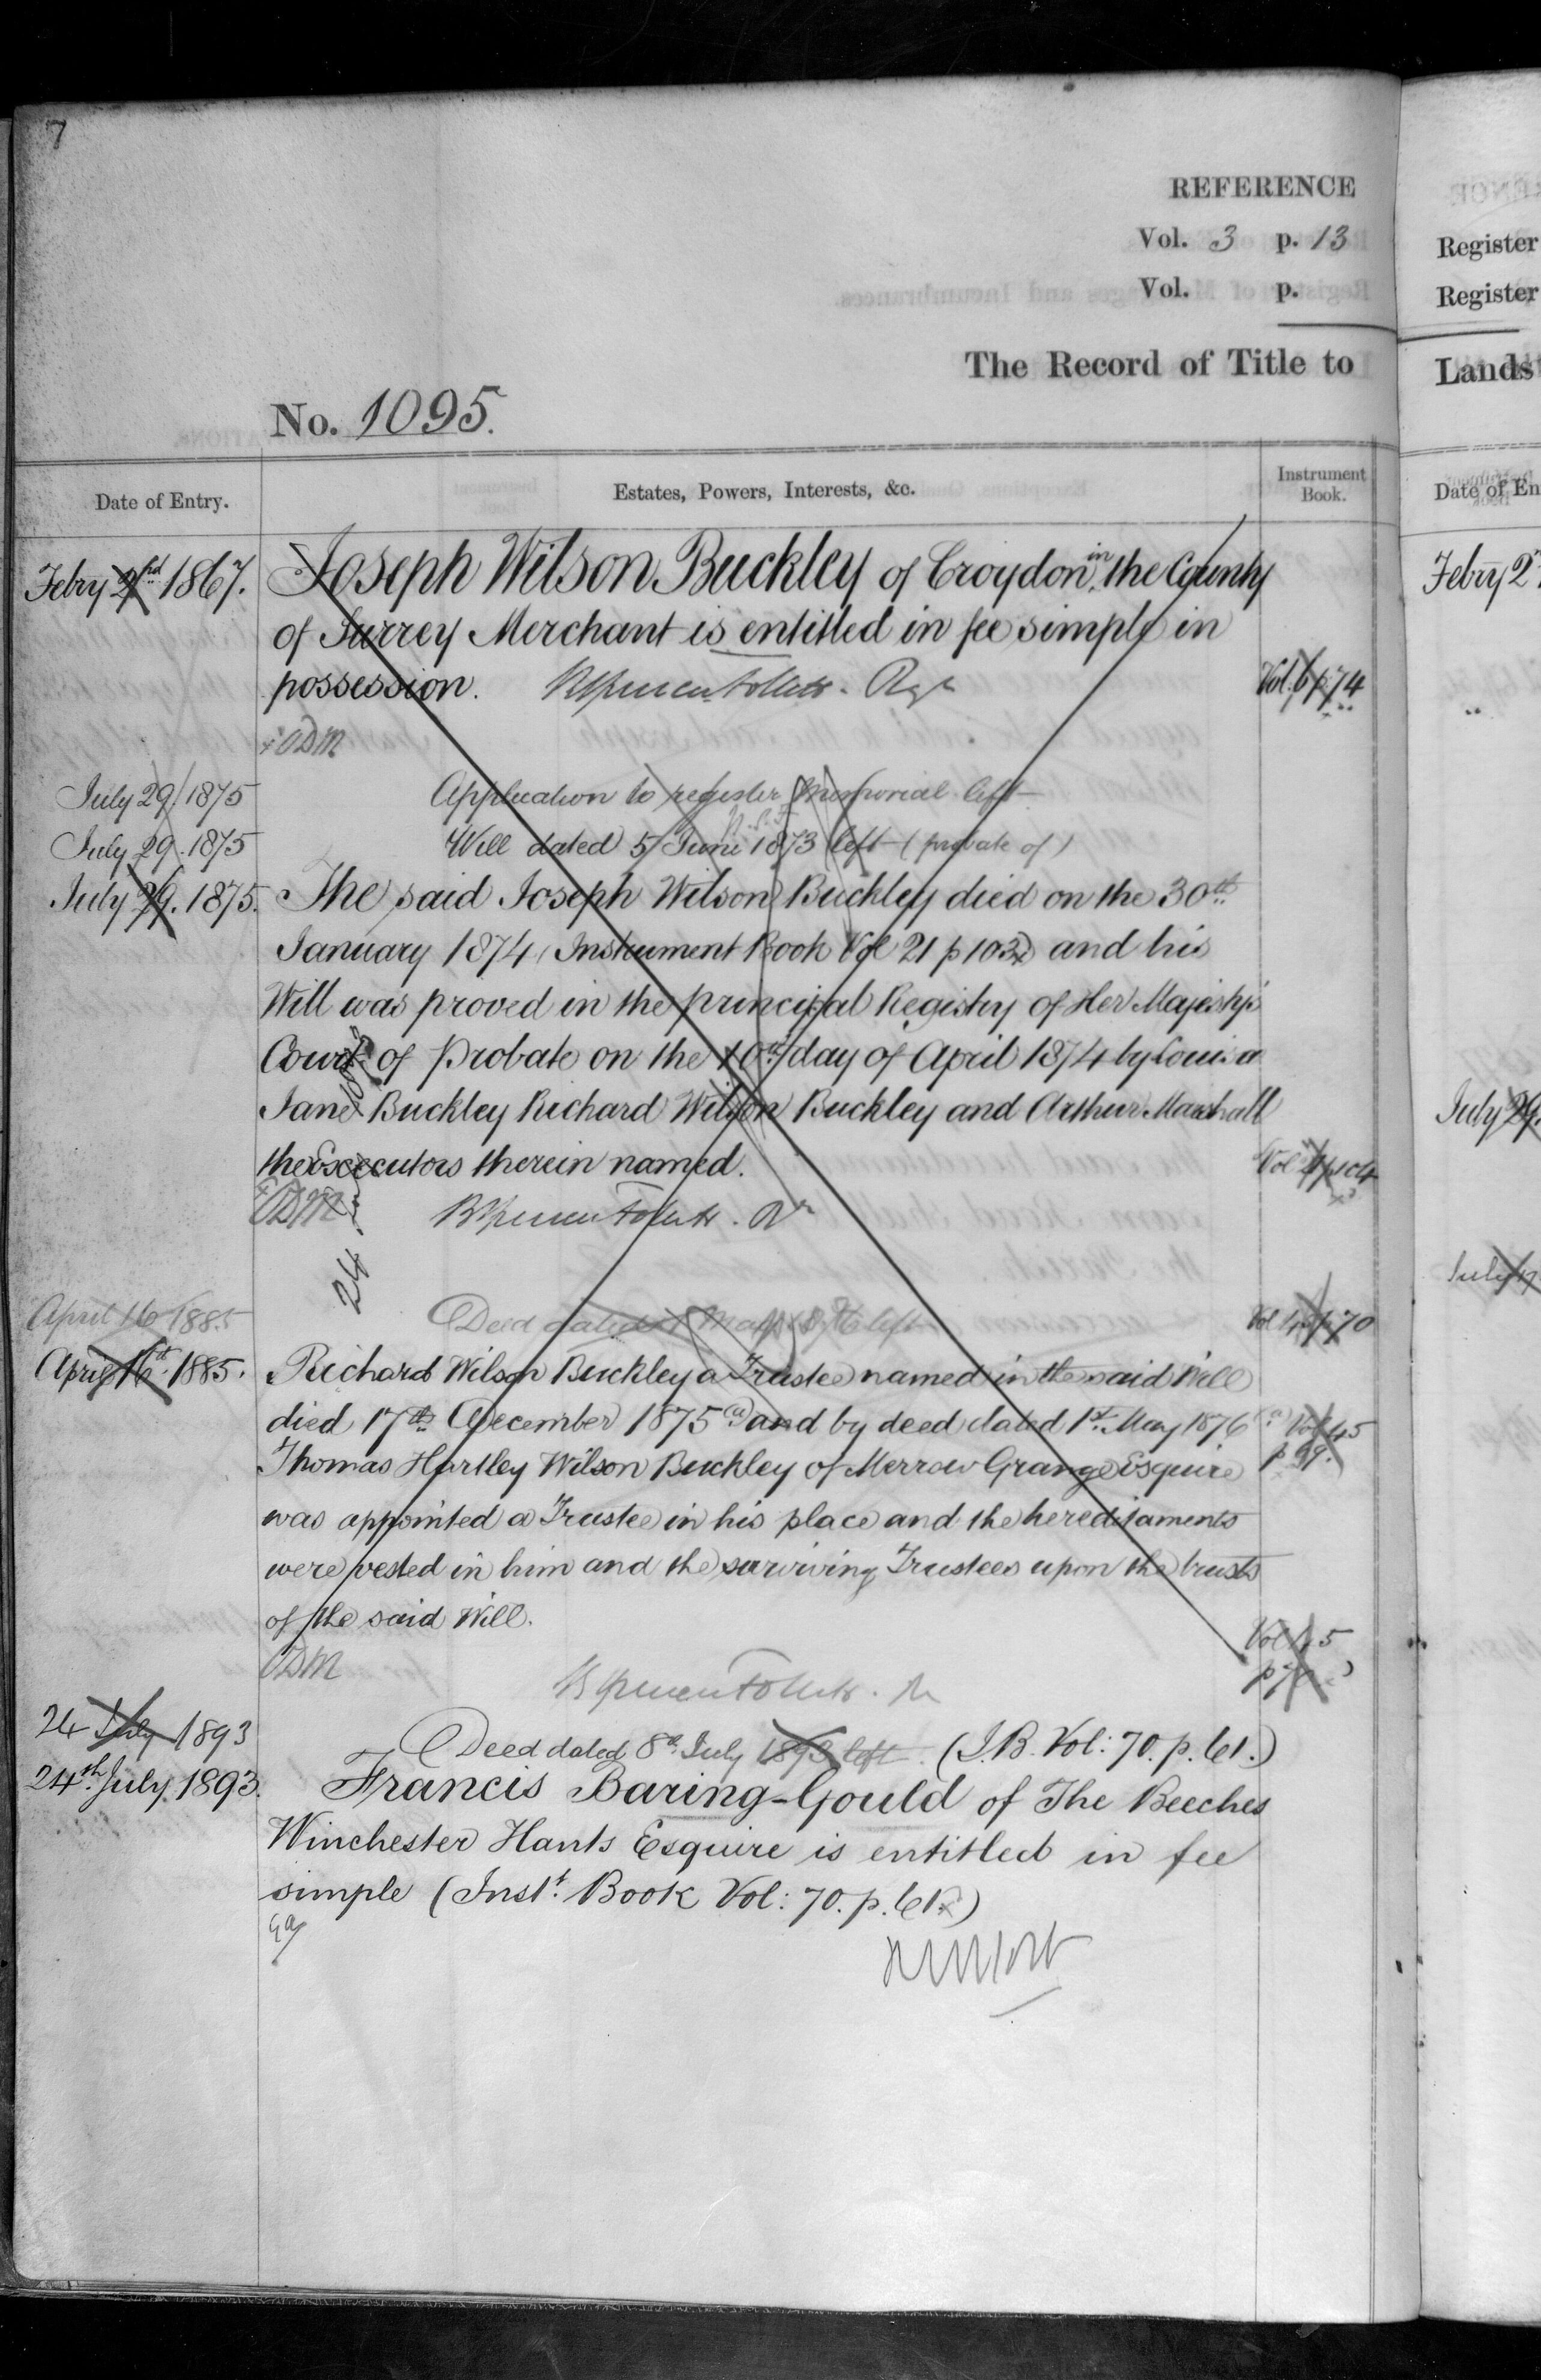 7
REFERENCE
Vol. 3 p. 13
Vol. p.
The Record of Title to
No. 1095.
Date of Entry. Estates, Powers, Interests, &c. Instrument Book.
Febry 2nd 1867. Joseph Wilson Buckley of Croydon in the County
of Surrey Merchant is entitled in fee simple in
possession. Vol. 6 p. 74
ODM
July 29 1875 Application to register Memorial left
July 29. 1875 Will dated 5 June 1873 left (probate of)
July 29. 1875. The said Joseph Wilson Buckley died on the 30th
January 1874 (Instrument Book Vol 21 p 103) and his
Will was proved in the principal Registry of Her Majesty's
Court of Probate on the 10th day of April 1874 by Louisa
Jane Buckley Richard Wilson Buckley and Arthur Marshall
the Executors therein named. Vol 21 p 104
ODM
24
April 16 1885 Deed dated 1 May 1876 left Vol 45 p 70
April 16th 1885. Richard Wilson Buckley a Trustee named in the said Will
died 17th December 1875 (a) and by deed dated 1st May 1876 (a) Vol 45
Thomas Hartley Wilson Buckley of Merrow Grange Esquire p 99.
was appointed a Trustee in his place and the hereditaments
were vested in him and the surviving Trustees upon the trusts
of the said Will.
Vol 45
ODM
24 July 1893 Deed dated 8th July 1893 left. (I.B. Vol: 70. p. 61.)
24th July 1893. Francis Baring-Gould of The Beeches
Winchester Hants Esquire is entitled in fee
simple (Inst. Book Vol: 70. p. 61.)
Register
Register
Lands
Date of En
Febry 2
July 29.
July